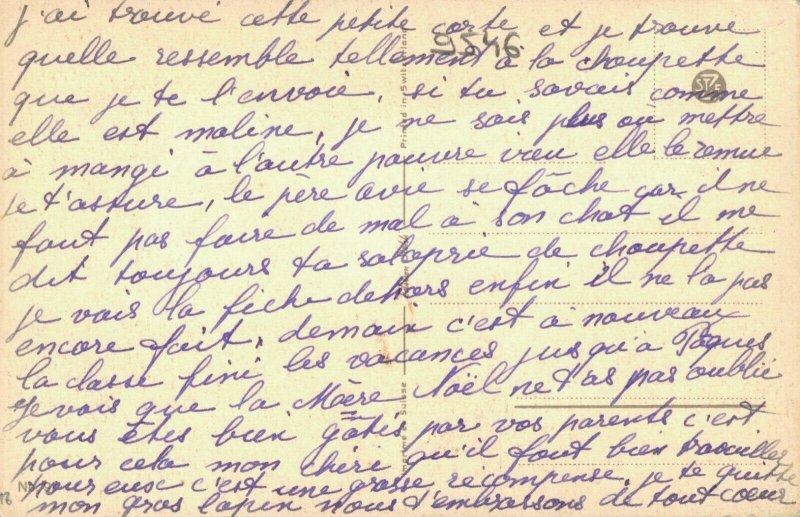 j'ai trouvé cette petite carte et je trouve
9546
quelle ressemble tellement à la choupette
que je te l'envoie, si tu savais comme
elle est maline, je ne sais plus ou mettre
à mangé à l'autre pauvre vieu elle le remue
je t'assure, le père avie se fâche car il ne
faut pas faire de mal à son chat il me
dit toujours ta saloprie de choupette
je vais la fiche dehors enfin il ne la pas
encore fait, demain c'est à nouveau
la classe fini les vacances jusqu'à Pâques
Je vois que la Mère Noël ne t'as pas oublié
vous êtes bien gâtés par vos parents c'est
pour cela mon chéri qu'il faut bien travailler
pour eux c'est une grosse récompense. je te quitte
mon gros lapin nous t'embrassons de tout cœur
Printed in Switzerland
STZF